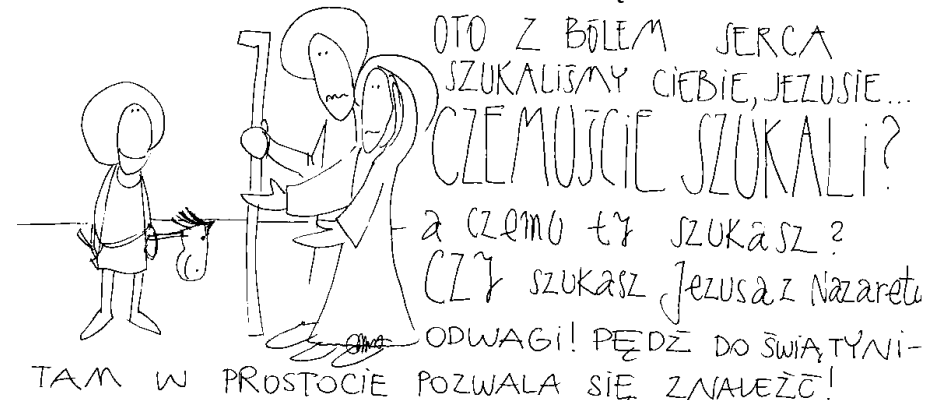 OTO Z BÓLEM SERCA
SZUKALIŚMY CIEBIE, JEZUSIE...
CZEMUŚCIE SZUKALI?
a czemu ty szukasz?
CZY szukasz Jezusa z Nazaretu
ODWAGI! PĘDŹ DO ŚWIĄTYNI-
TAM W PROSTOCIE POZWALA SIĘ ZNALEŹĆ!